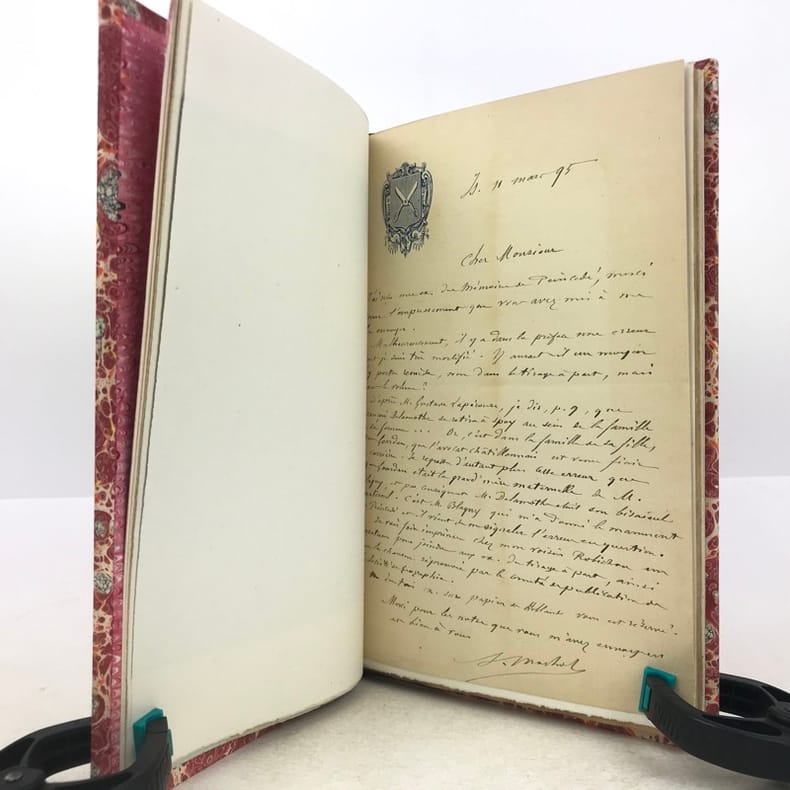 Is. 11 mars 95
Cher Monsieur
reçu mes ex. du Mémoire de Peincedé, merci
l'empressement que vous avez mis à me
Malheureusement, il y a dans la préface une erreur
je suis très mortifié. Y aurait-il un moyen
porter remède, non dans le tirage à part, mais
le volume?
M. Gustave Lapérouse, je dis, p. 9, que
Delamothe se retira à Spoy au sein de la famille
sa femme ... Or, c'est dans la famille de sa fille,
que l'avocat châtillonnais est venu finir
carrière. Je regrette d'autant plus cette erreur que
était la grand'mère maternelle de M.
et par conséquent M. Delamothe était son bisaïeul
C'est M. Bligny qui m'a donné le manuscrit
et il vient de me signaler l'erreur en question.
Je vais faire imprimer chez mon voisin Robichon un
pour joindre aux ex. du tirage à part, ainsi
la chanson réprouvée par le comité de publication de
de Géographie.
ex. sur papier de Hollande vous est réservé?
Merci pour les notes que vous m'avez envoyées
et bien à vous